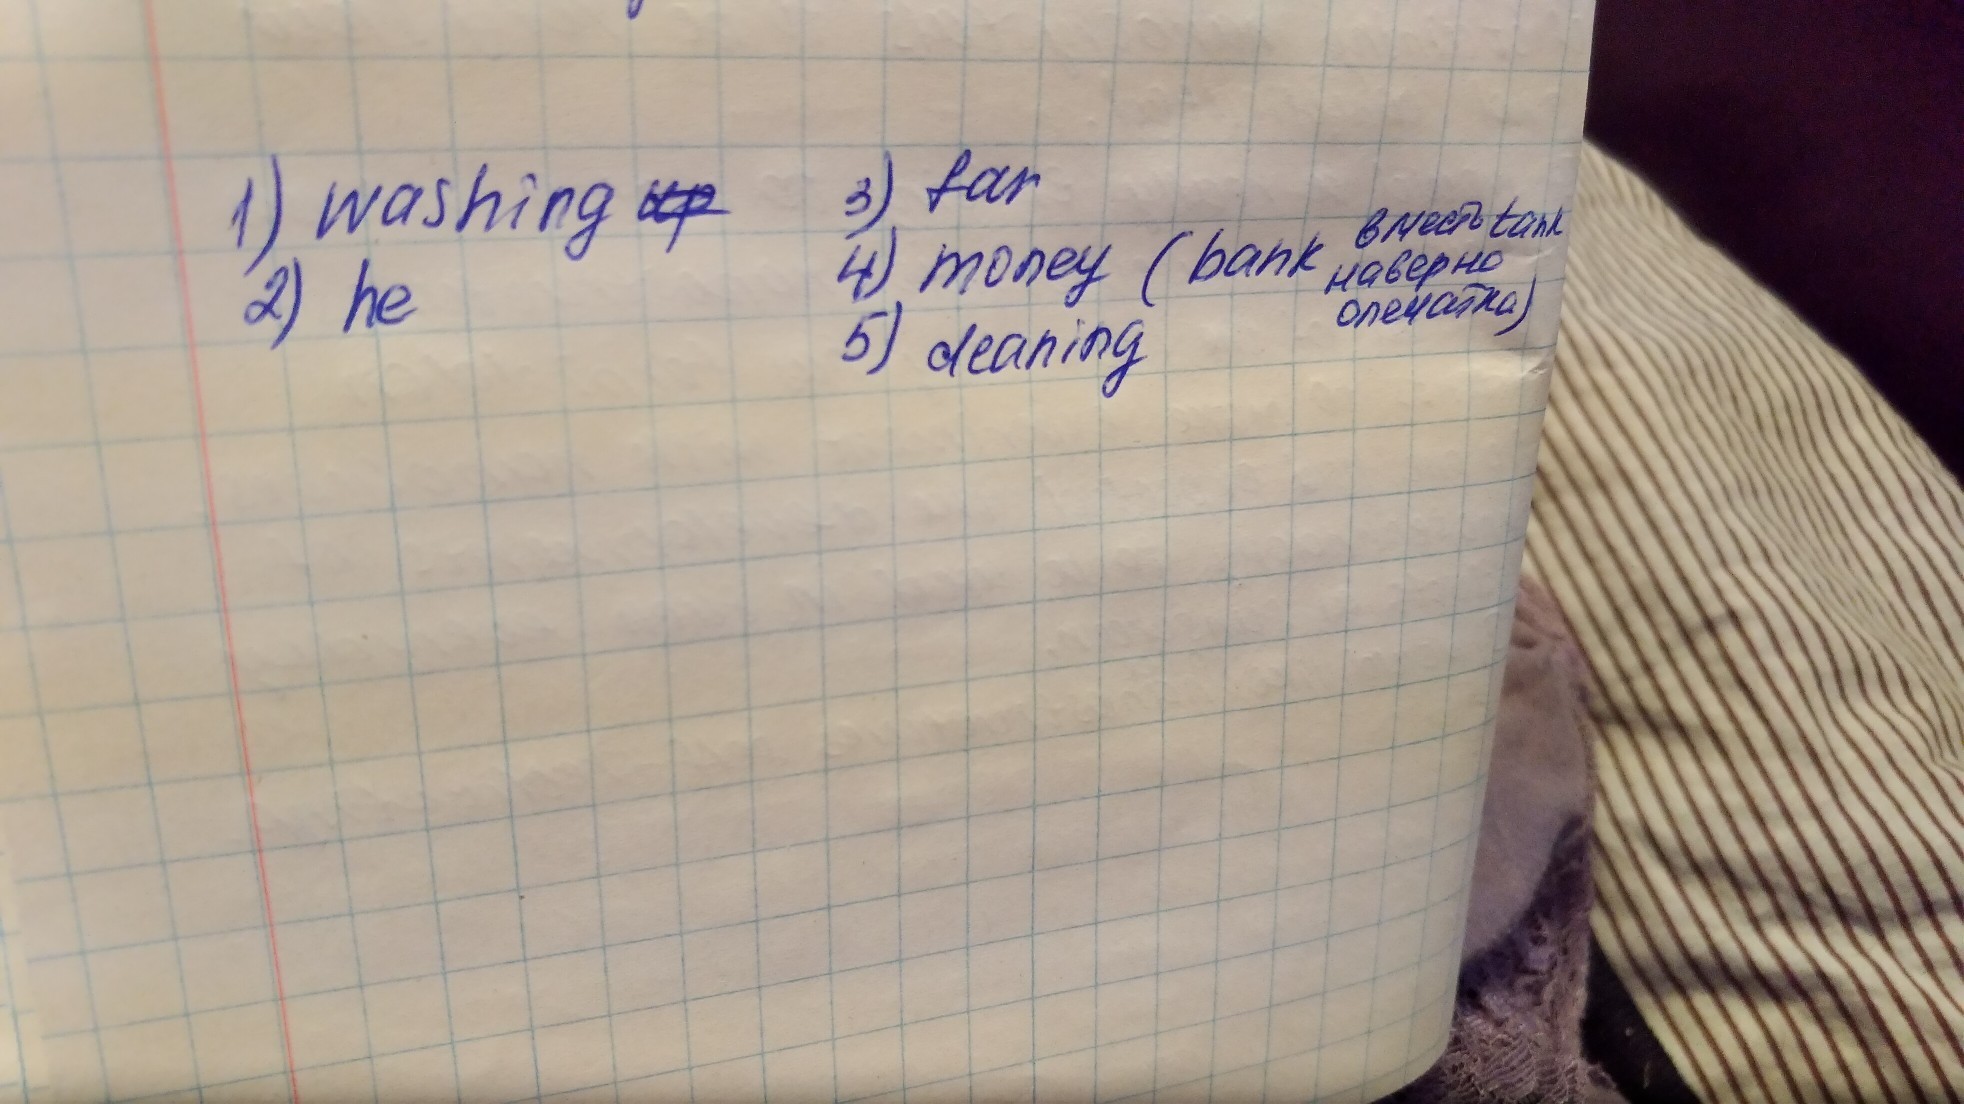 1) washing
2) he
3) far
4) money (bank вместь tank
наверно
опечатка)
5) cleaning